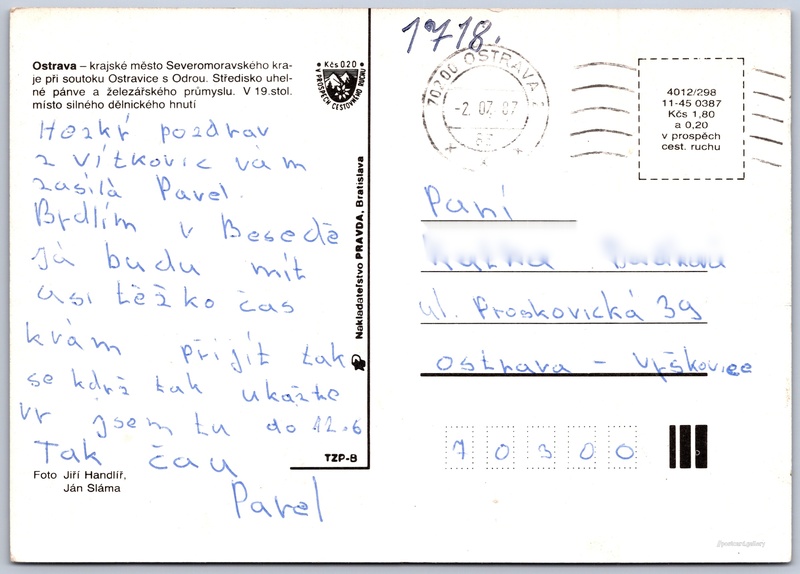 1718.
Ostrava – krajské město Severomoravského kra-
je při soutoku Ostravice s Odrou. Středisko uhel-
né pánve a železářského průmyslu. V 19.stol.
místo silného dělnického hnutí
Kčs 0,20
V PROSPĚCH CESTOVNÉHO RUCHU
702 00 OSTRAVA 2
-2.07.87
4012/298
11-45 0387
Kčs 1,80
a 0,20
v prospěch
cest. ruchu
Hezký pozdrav
z Vítkovic vám
zasílá Pavel.
Bydlím v Besedě
já budu mít
asi těžko čas
k vám přijít tak
se když tak ukažte
vy jsem tu do 12.6
Tak čau
Pavel
Nakladateľstvo PRAVDA, Bratislava
TZP-B
Foto Jiří Handlíř,
Ján Sláma
Paní
ul. Proskovická 39
Ostrava –
70300